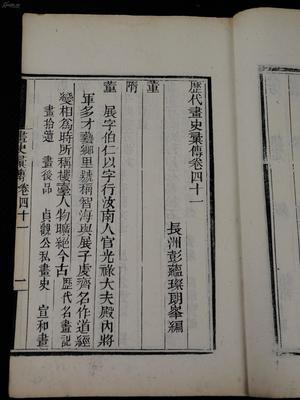 歷代畫史彙傳卷四十一
長洲彭蘊璨朗峯編
董
隋
董展字伯仁以字行汝南人官光祿大夫殿內將
軍多才藝鄉里號稱智海與展子虔齊名作道經
變相爲時所稱樓臺人物曠絕今古歷代名畫記
畫拾遺 畫後品 貞觀公私畫史 宣和畫
畫史彙傳卷四十一
一